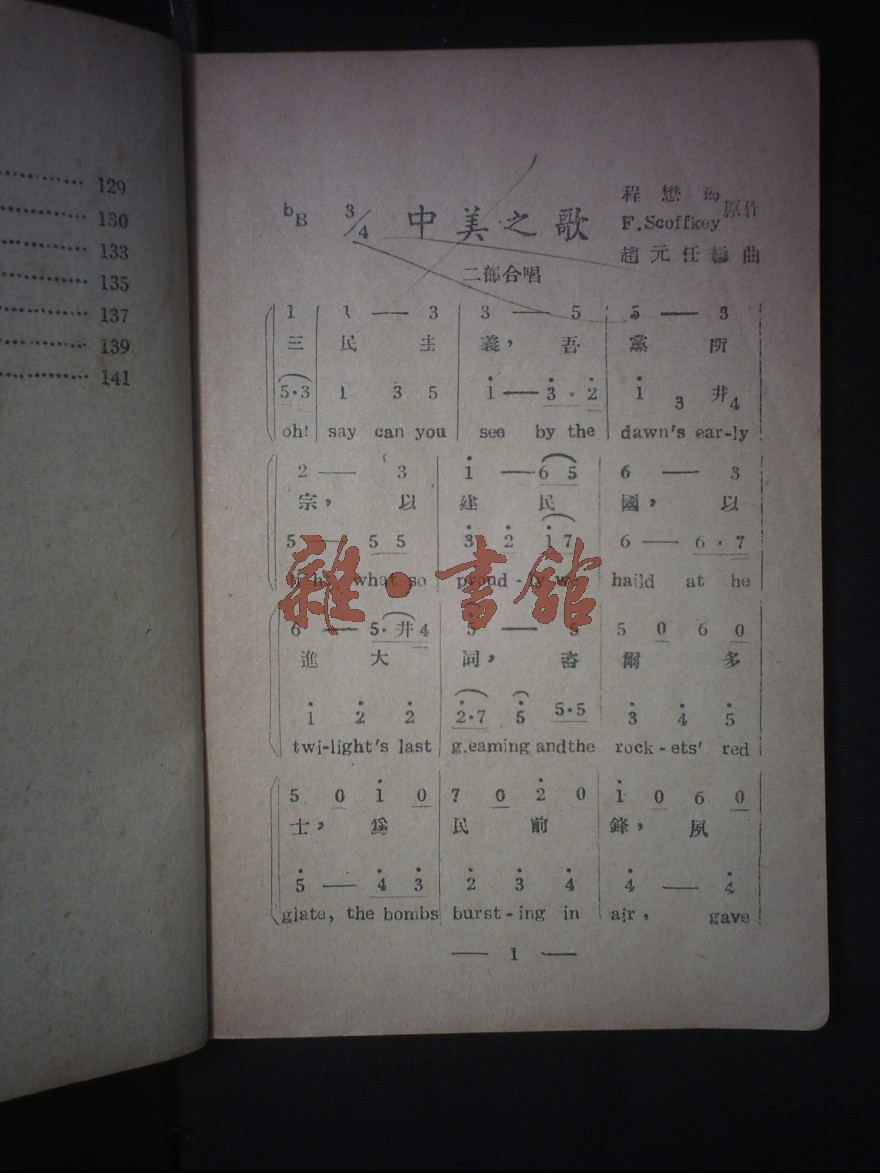 129
130
133
135
137
139
141
bB 3/4 中美之歌
程懋筠
F.Scoffkey 原作
趙元任編曲
二部合唱
1 | 1 — 3 | 3 — 5 | 5 — 3
三 民 主 義， 吾 黨 所
5·3 | 1 3 5 | i — 3·2 | i 3 井4
oh! say can you see by the dawn's ear-ly
2 — 3 | i — 6 5 | 6 — 3
宗， 以 建 民 國， 以
5 — 5 5 | 3 2 i 7 | 6 — 6·7
light what so proud-ly we haild at he
6 — 5·井4 | 5 — 5 | 5 0 6 0
進 大 同， 咨 爾 多
i 2 2 | 2·7 5 5·5 | 3 4 5
twi-light's last g.eaming andthe rock-ets' red
5 0 i 0 | 7 0 2 0 | i 0 6 0
士， 爲 民 前 鋒， 夙
5 — 4 3 | 2 3 4 | 4 — 4
glate, the bombs burst-ing in air, gave
— 1 —
雜·書館